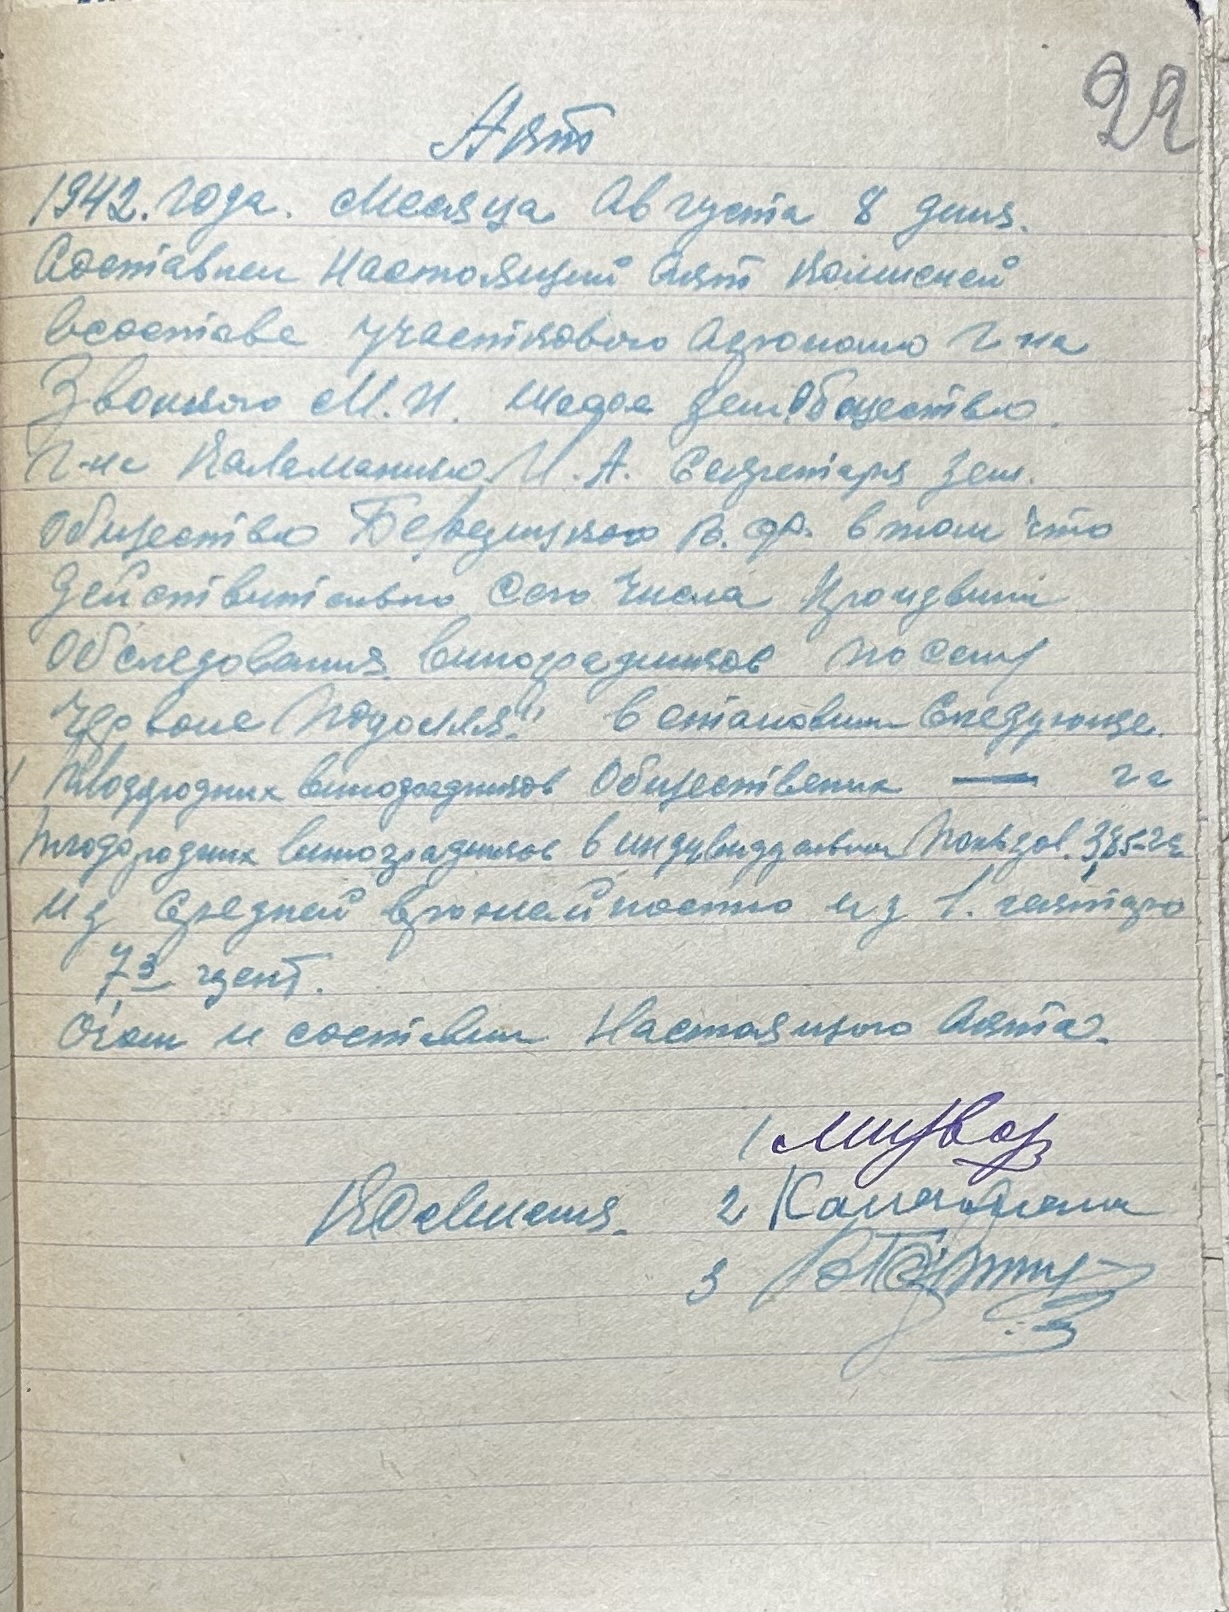 22
Акт
1942. года. Месяца Августа 8 дня.
Составлен настоящий акт комисией
всоставе участкового Агронома г-на
М.И. зем. Общества
г-на И.А. Секретаря зем.
Общество В.Ф. в том что
действительно сего числа произвели
Обследования виноградников по селу
Червоне Подолля" встановили следующе.
1/ Плодородних виноградников Обществених — га
Плодородних виноградников в индувидуальном Пользов. 3,85 га
Из средней врожайностю из 1. гектара
73 цент.
Очом и составили настоящого Акта.
1
Комисия. 2
3